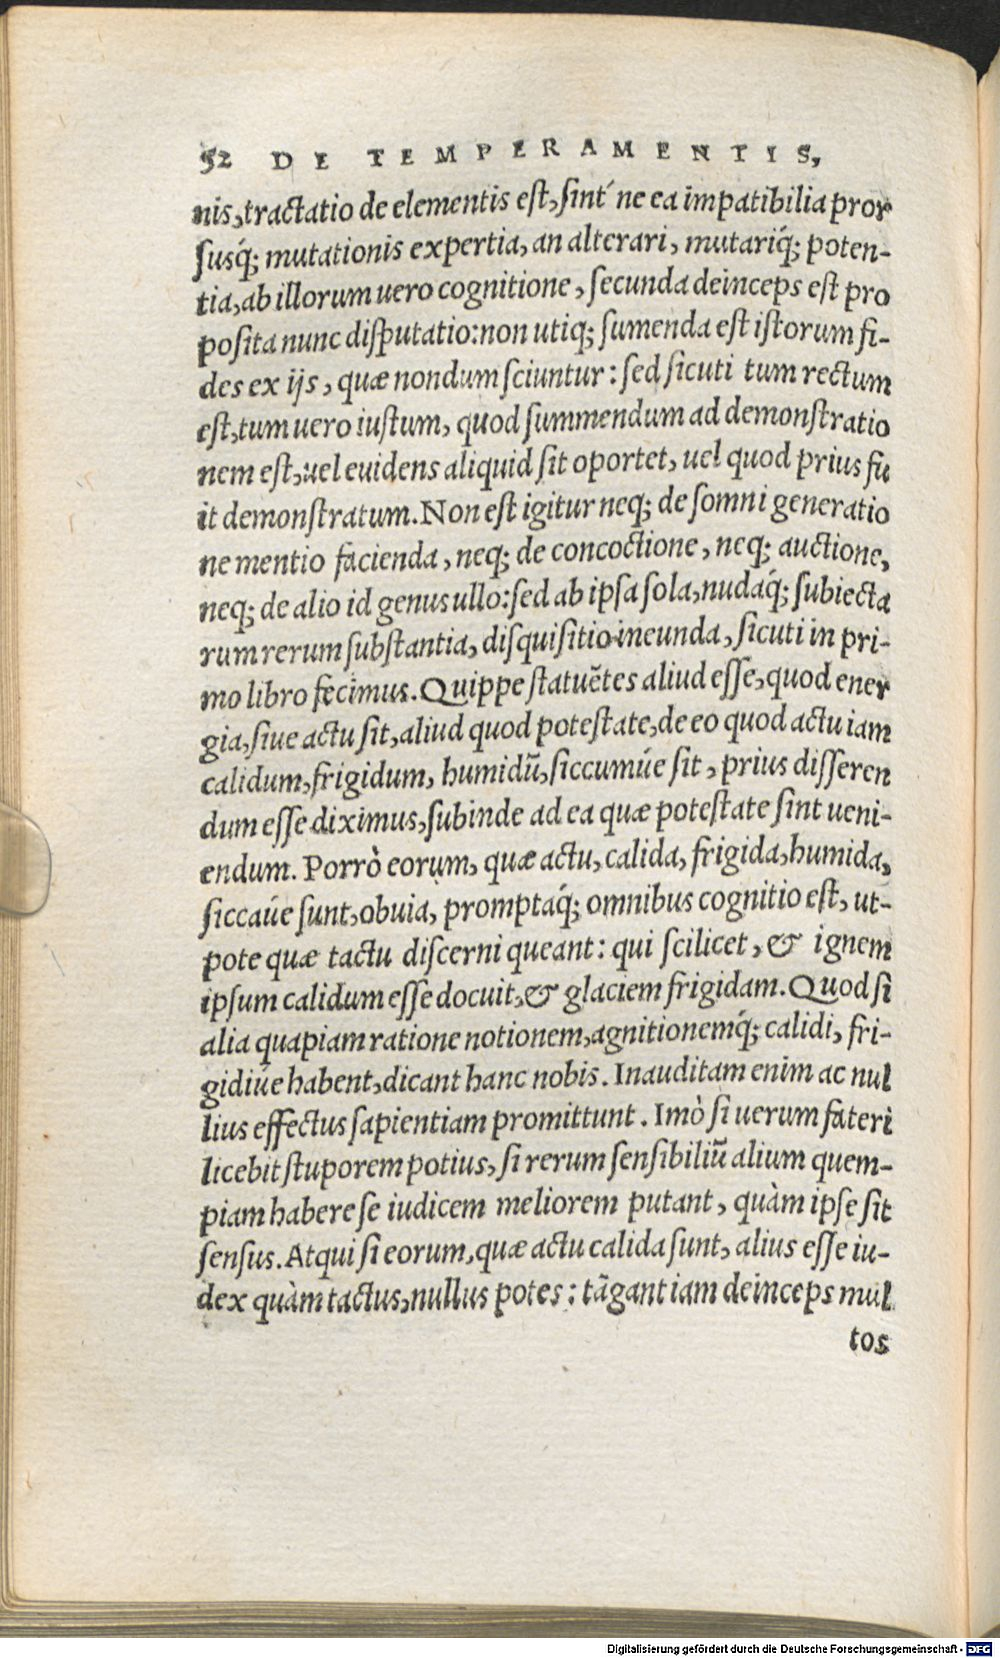 52 DE TEMPERAMENTIS,
nis, tractatio de elementis eſt, ſint´ ne ea impatibilia pror
ſusq́; mutationis expertia, an alterari, mutariq́; poten-
tia, ab illorum uero cognitione, ſecunda deinceps eſt pro
poſita nunc diſputatio: non utiq; ſumenda eſt iſtorum fi-
des ex ijs, quæ nondum ſciuntur: ſed ſicuti tum rectum
eſt, tum uero iuſtum, quod ſummendum ad demonſtratio
nem eſt, uel euidens aliquid ſit oportet, uel quod prius fu
it demonſtratum. Non eſt igitur neq; de ſomni generatio
ne mentio facienda, neq; de concoctione, neq; auctione,
neq; de alio id genus ullo: ſed ab ipſa ſola, nudaq́; ſubiecta
rum rerum ſubſtantia, diſquiſitio ineunda, ſicuti in pri-
mo libro fecimus. Quippe ſtatuẽtes aliud eſſe, quod ener
gia, ſiue actu ſit, aliud quod poteſtate, de eo quod actu iam
calidum, frigidum, humidũ, ſiccumúe ſit, prius diſſeren
dum eſſe diximus, ſubinde ad ea quæ poteſtate ſint ueni-
endum. Porrò eorum, quæ actu, calida, frigida, humida,
ſiccaúe ſunt, obuia, promptaq́; omnibus cognitio eſt, ut-
pote quæ tactu diſcerni queant: qui ſcilicet, & ignem
ipſum calidum eſſe docuit, & glaciem frigidam. Quod ſi
alia quapiam ratione notionem, agnitionemq́; calidi, fri-
gidiúe habent, dicant hanc nobis. Inauditam enim ac nul
lius effectus ſapientiam promittunt. Imò ſi uerum fateri
licebit ſtuporem potius, ſi rerum ſenſibiliũ alium quem-
piam habere ſe iudicem meliorem putant, quàm ipſe ſit
ſenſus. Atqui ſi eorum, quæ actu calida ſunt, alius eſſe iu-
dex quàm tactus, nullus potes: tãgant iam deinceps mul
tos
Digitalisierung gefördert durch die Deutsche Forschungsgemeinschaft - DFG